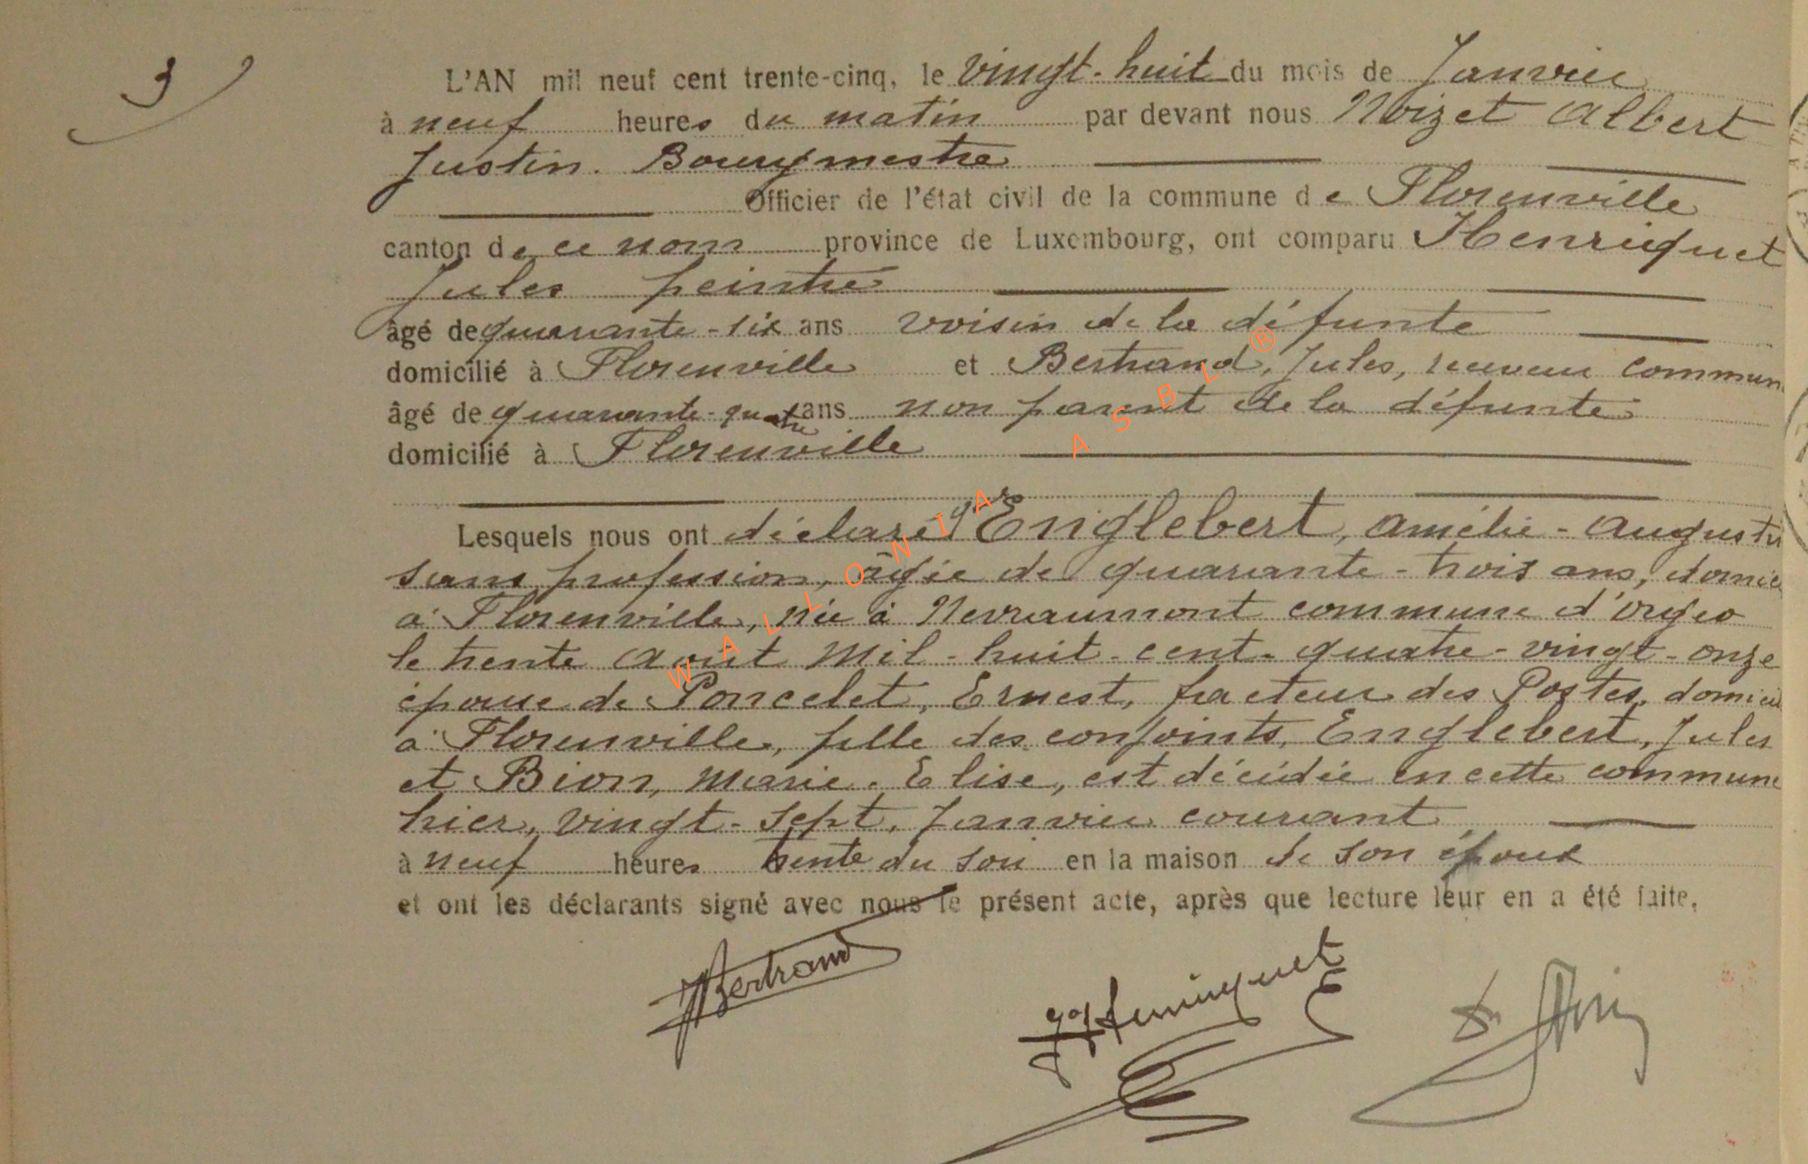 3
L'AN mil neuf cent trente-cinq, le vingt-huit du mois de Janvier
à neuf heures du matin par devant nous Noizet Albert
Justin. Bourgmestre
Officier de l'état civil de la commune de Florenville
canton de ce nom province de Luxembourg, ont comparu Henriquet
Jules peintre
âgé de quarante-six ans voisin de la défunte
domicilié à Florenville et Bertrand, Jules, receveur commun
âgé de quarante-quatre ans non parent de la défunte
domicilié à Florenville
Lesquels nous ont déclaré q Englebert, Amélie-Augusti
sans profession, âgée de quarante-trois ans, domici
à Florenville, née à Nevraumont commune d'Orgeo
le trente Août mil-huit-cent-quatre-vingt-onze
épouse de Poncelet, Ernest, facteur des Postes, domici
à Florenville, fille des conjoints, Englebert, Jules
et Bion, Marie-Elise, est décédée en cette commune
hier, vingt-sept, Janvier courant
à neuf heures trente du soir en la maison de son époux
et ont les déclarants signé avec nous le présent acte, après que lecture leur en a été faite.
JBertrand
Henriquet
WALLONIA ASBL ®